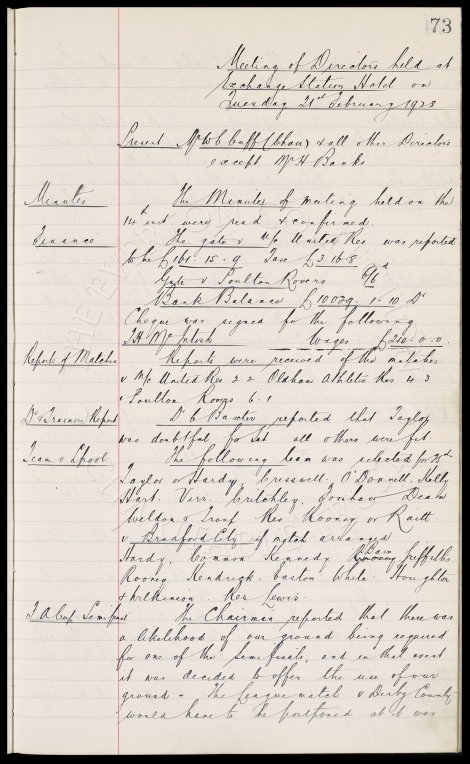 73
Meeting of Directors held at
Exchange Station Hotel on
Tuesday 21st February 1928
Present Mr W C Cuff (Chair) & all other Directors
except Mr H Banks
Minutes
The Minutes of meeting held on the
14th inst were read & confirmed.
Finance
The gate v M/c United Res was reported
to be £161. 15. 9 Tax £3. 16. 8
Gate v Poulton Rovers 6/6d
Bank Balance £10079. 1. 10 Dr
Cheque was signed for the following
T H McIntosh Wages £210. 0. 0.
Reports of Matches
Reports were received of the matches
v M/c United Res 2 2 Oldham Athletic Res 4. 3
v Poulton Rovers 6. 1
Dr & Trainers Report
Dr C Baxter reported that Taylor
was doubtful for Sat all others were fit
Team v L'pool
The following team was selected for 25th
Taylor or Hardy. Cresswell. O'Donnell. Kelly
Hart. Virr. Critchley. Forshaw Dean
Weldon & Troup Res Rooney or Raitt
v Bradford City if match arranged
Hardy. Common Kennedy Bain Griffiths
Rooney Kendrick. Easton White. Houghton
& Wilkinson. Res Lewis.
F A Cup. Semifinal
The Chairman reported that there was
a likelihood of our ground being required
for one of the Semifinals, and in that event
it was decided to offer the use of our
ground - The League match v Derby County
would have to be postponed as it was